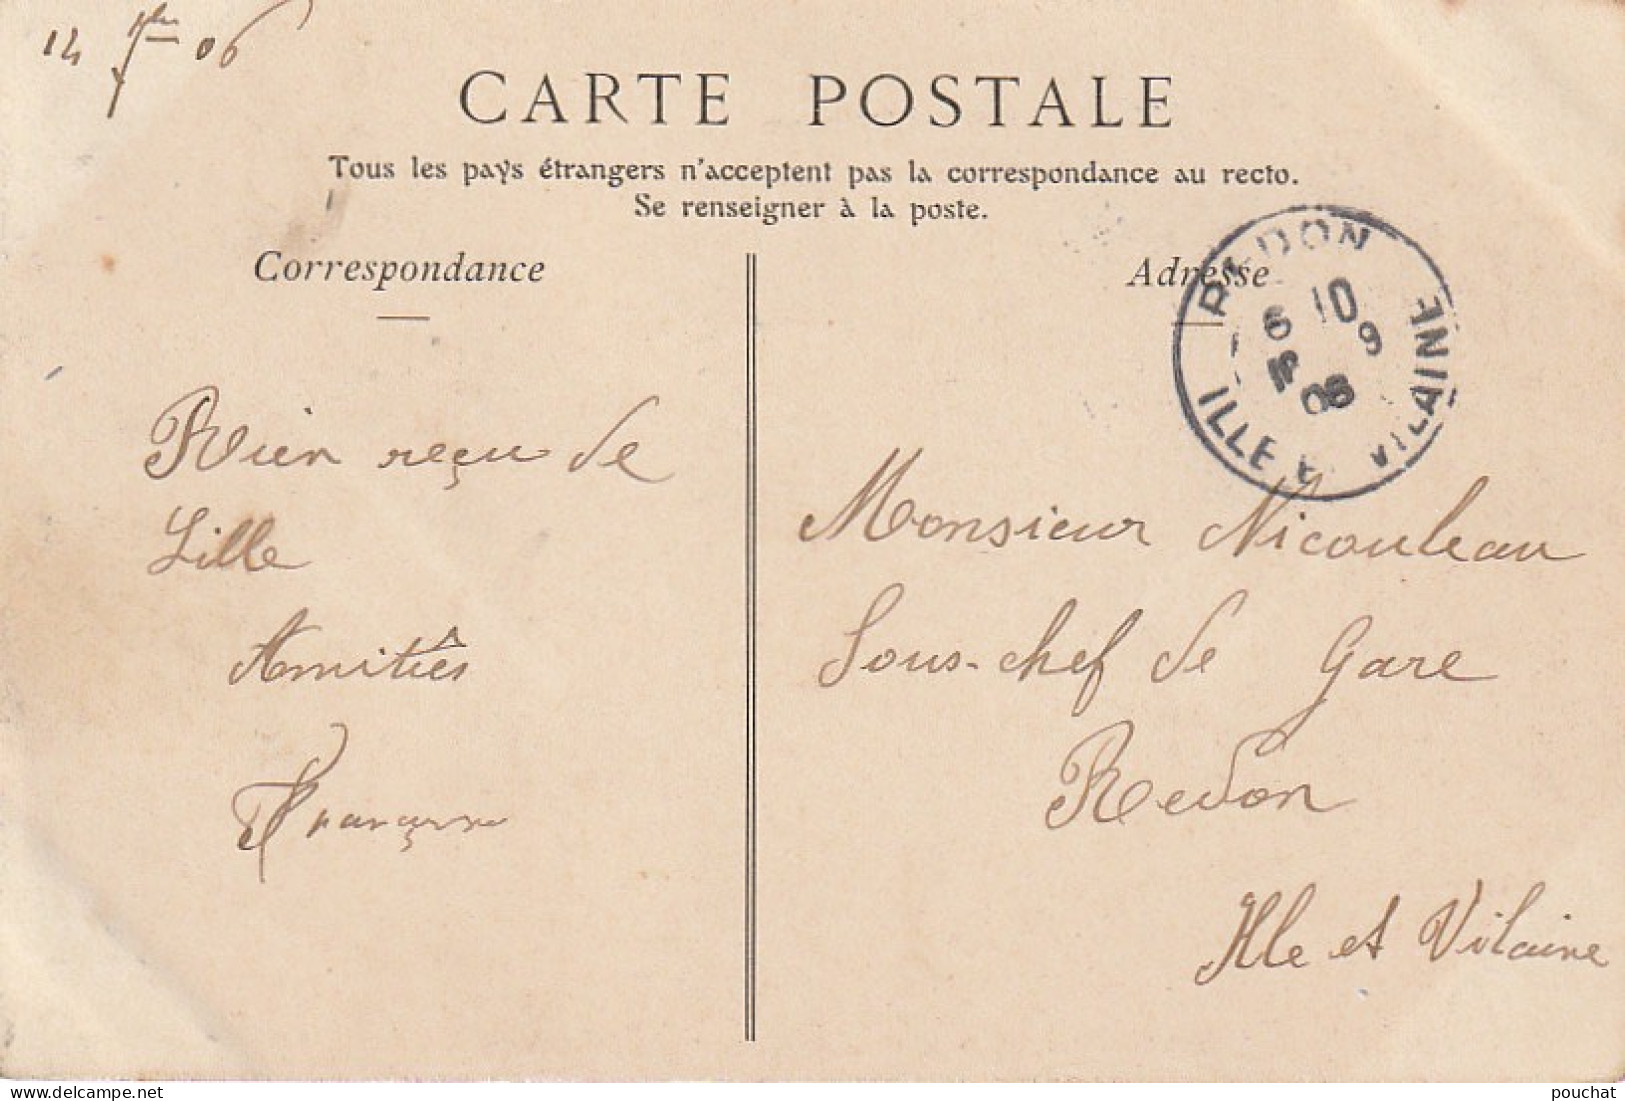 14 7bre 06
CARTE POSTALE
Tous les pays étrangers n'acceptent pas la correspondance au recto.
Se renseigner à la poste.
Correspondance
Rien reçu de
Lille
Amitiés
Adresse
REDON
6 10
9
06
ILLE ET VILAINE
Monsieur Nicouleau
Sous-chef de Gare
Redon
Ille et Vilaine
www.delcampe.net
pouchat